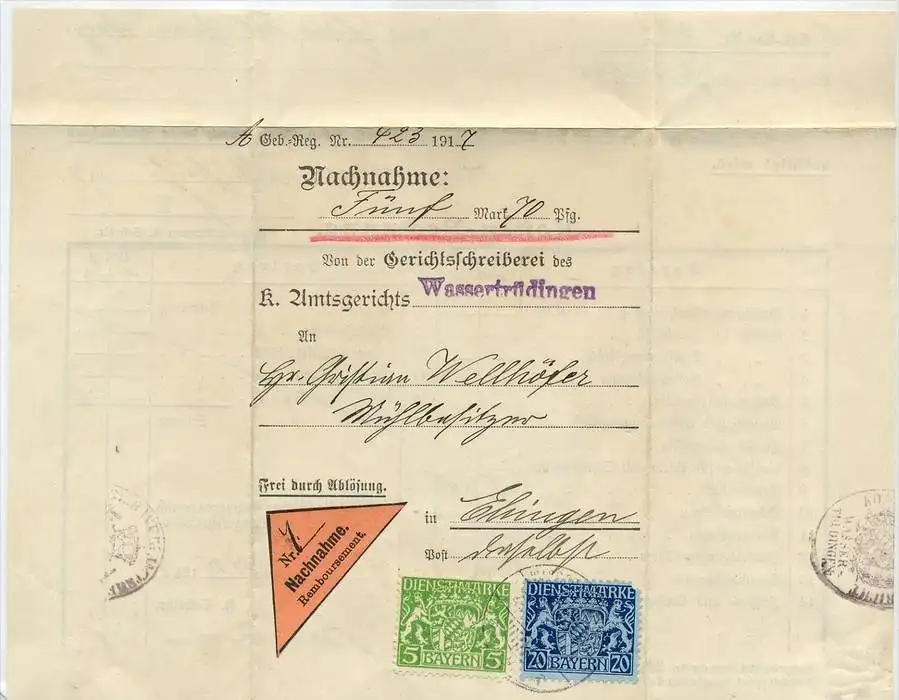 A Geb.-Reg. Nr. 423 1917
Nachnahme:
Fünf Mark 70 Pfg.
Von der Gerichtsschreiberei des
K. Amtsgerichts Wassertrüdingen
An
Hr. Christian Wellhöfer
Mühlbesitzer
Frei durch Ablösung.
in Ehingen
Post daselbst
Nr. 1
Nachnahme.
Remboursement.
DIENSTMARKE
5 BAYERN 5
DIENSTMARKE
20 BAYERN 20